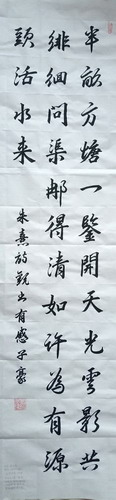 半畝方塘一鑒開天光雲影共
徘徊問渠那得清如許為有源
頭活水來
朱熹詩觀书有感子豪